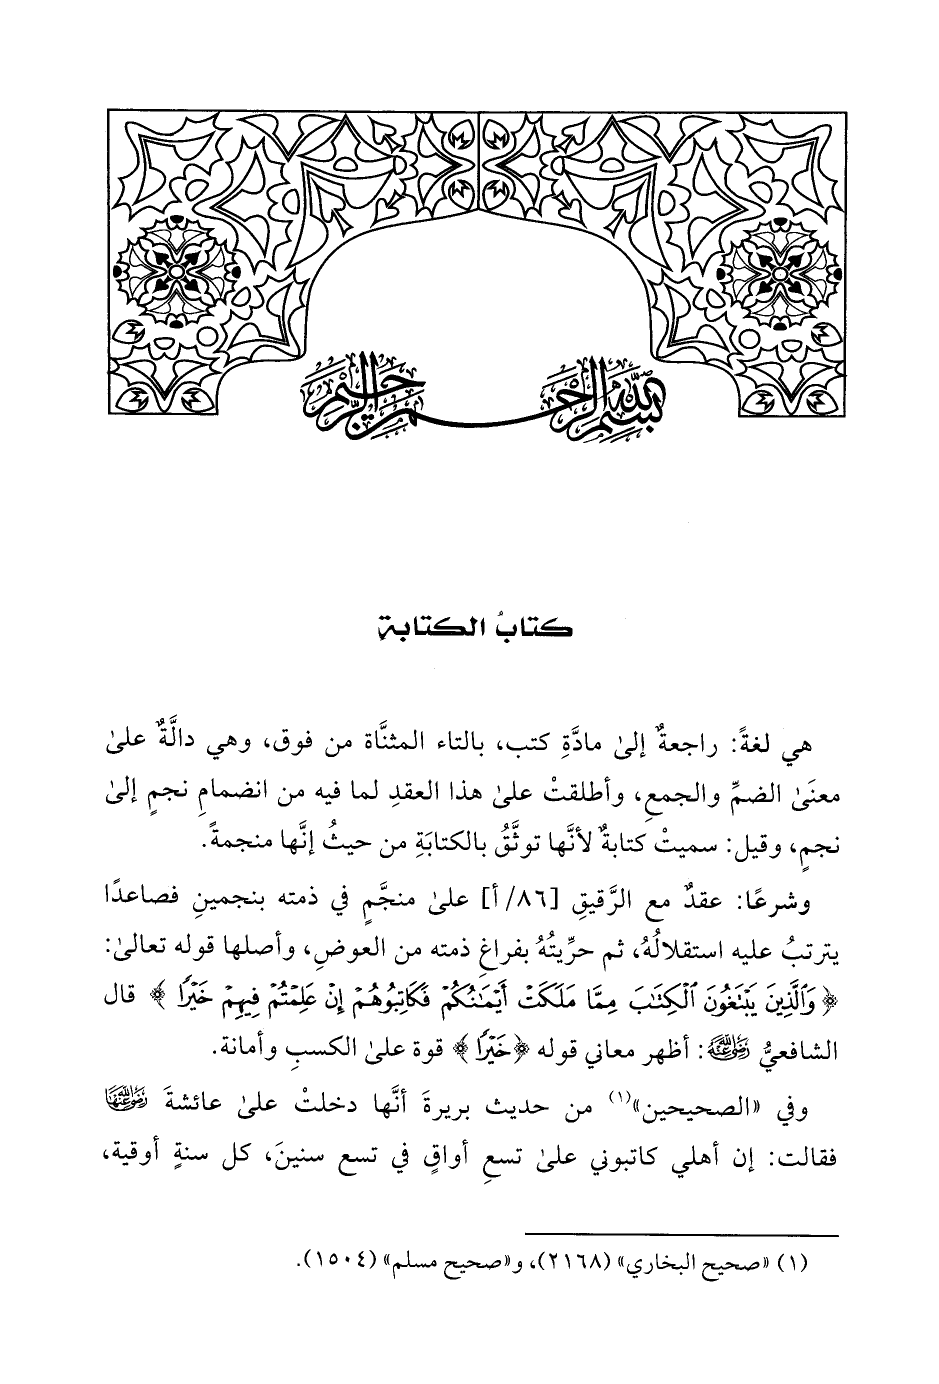 بسم الله الرحمن الرحيم
كتابُ الكتابة
هي لغةً: راجعةٌ إلىٰ مادَّةِ كتب، بالتاء المثنَّاة من فوق، وهي دالَّةٌ علىٰ
معنَىٰ الضمِّ والجمعِ، وأطلقتْ علىٰ هذا العقدِ لما فيه من انضمامِ نجمٍ إلىٰ
نجمٍ، وقيل: سميتْ كتابةٌ لأنَّها توثَّقُ بالكتابَةِ من حيثُ إنَّها منجمةً.
وشرعًا: عقدٌ مع الرَّقيقِ [٨٦/ أ] علىٰ منجَّمٍ في ذمته بنجمينِ فصاعدًا
يترتبُ عليه استقلالُهُ، ثم حرِّيتُهُ بفراغِ ذمته من العوضِ، وأصلها قوله تعالىٰ:
﴿ وَٱلَّذِينَ يَبۡتَغُونَ ٱلۡكِتَٰبَ مِمَّا مَلَكَتۡ أَيۡمَٰنُكُمۡ فَكَاتِبُوهُمۡ إِنۡ عَلِمۡتُمۡ فِيهِمۡ خَيۡرٗا ﴾ قال
الشافعيُّ رضي الله عنه: أظهر معاني قوله ﴿خَيۡرٗا ﴾ قوة علىٰ الكسبِ وأمانة.
وفي «الصحيحين»(١) من حديث بريرةَ أنَّها دخلتْ علىٰ عائشةَ رضي الله عنها
فقالت: إن أهلي كاتبوني علىٰ تسعِ أواقٍ في تسع سنينَ، كل سنةٍ أوقية،
(١) «صحيح البخاري» (٢١٦٨)، و«صحيح مسلم» (١٥٠٤).